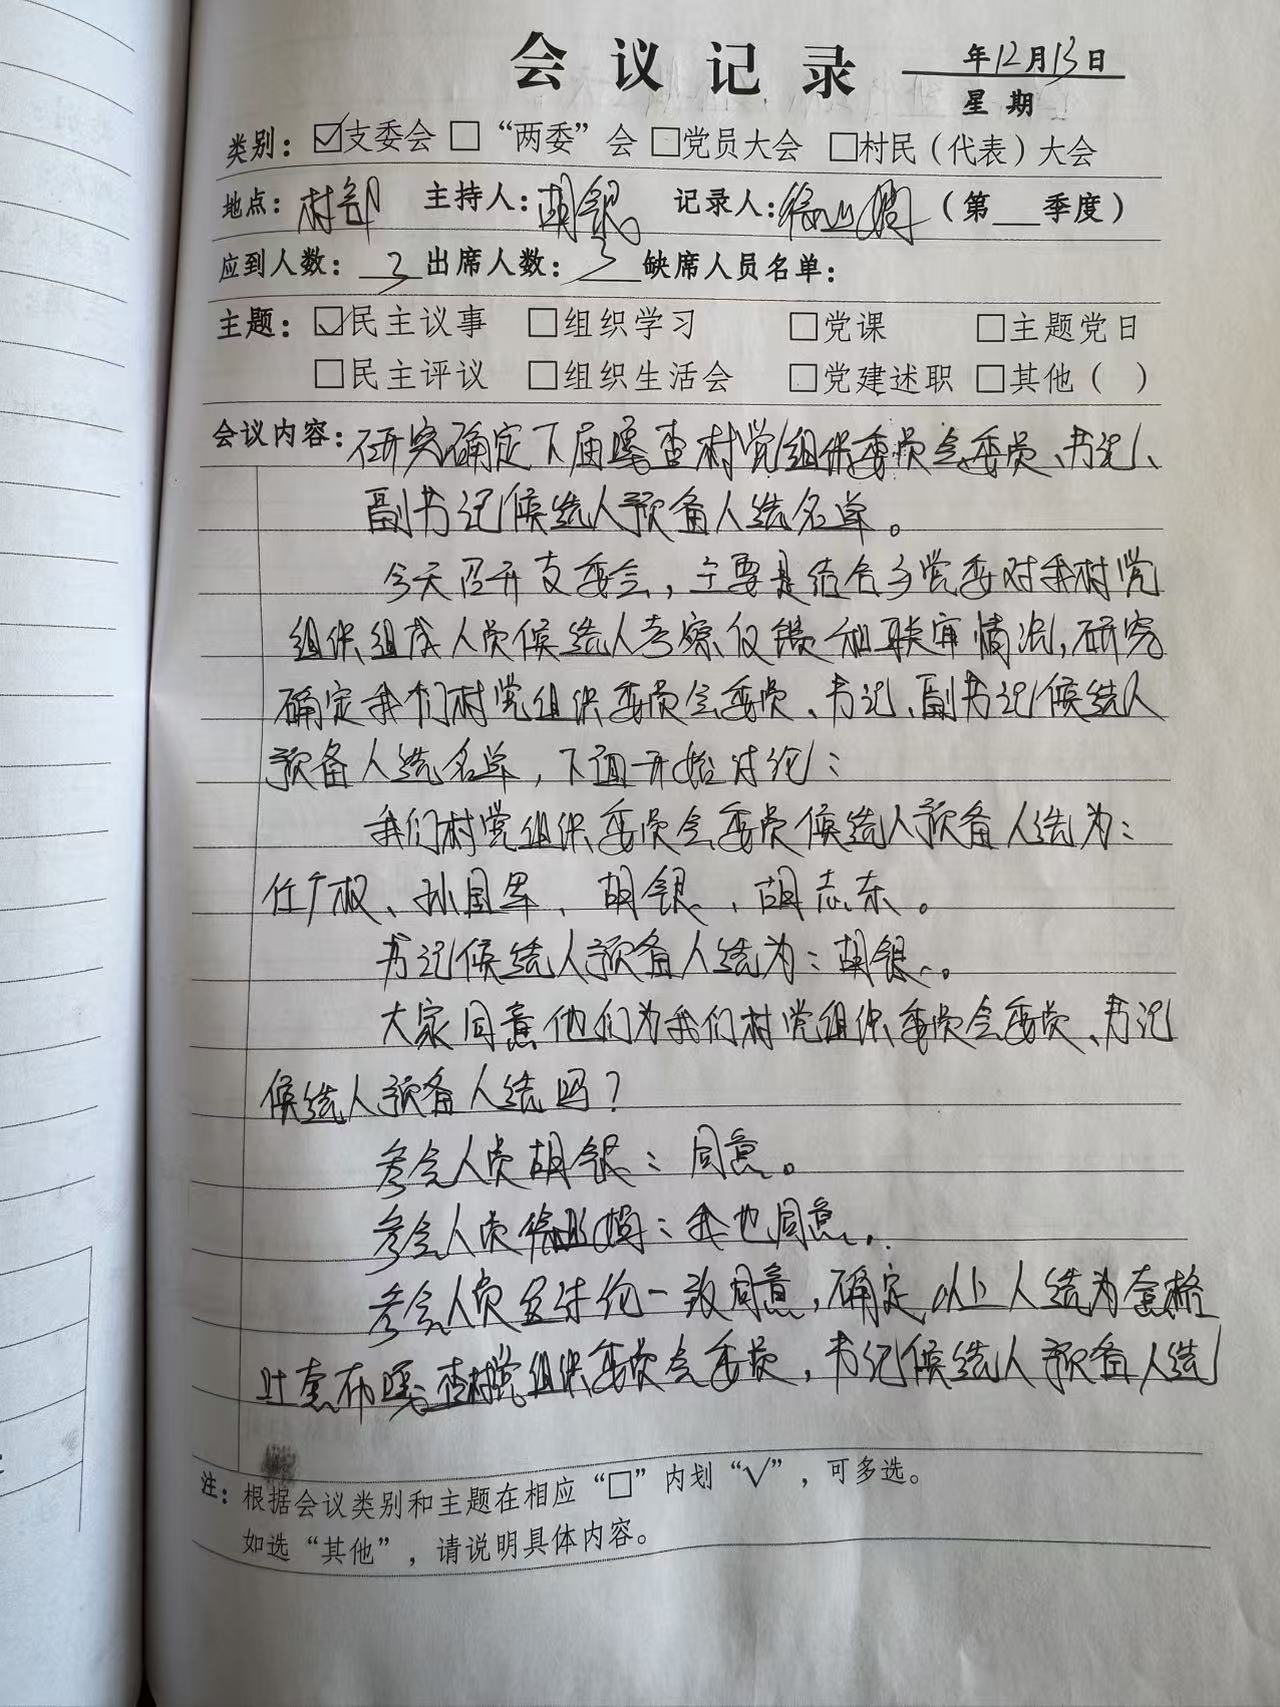 会议记录 年12月13日
星期
类别：☑支委会 □“两委”会 □党员大会 □村民（代表）大会
地点：村部 主持人：胡银 记录人： （第__季度）
应到人数：3 出席人数：3 缺席人员名单：
主题：☑民主议事 □组织学习 □党课 □主题党日
□民主评议 □组织生活会 □党建述职 □其他（ ）
会议内容：研究确定下届嘎查村党组织委员会委员、书记、
副书记候选人预备人选名单。
今天召开支委会，主要是结合乡党委对我村党
组织组成人员候选人考察反馈和联审情况，研究
确定我们村党组织委员会委员、书记、副书记候选人
预备人选名单，下面开始讨论：
我们村党组织委员会委员候选人预备人选为：
任广权、孙国军、胡银、胡志东。
书记候选人预备人选为：胡银。
大家同意他们为我们村党组织委员会委员、书记
候选人预备人选吗？
参会人员胡银：同意。
参会人员：我也同意。
参会人员全讨论一致同意，确定以上人选为套格
吐套布嘎查村党组织委员会委员，书记候选人预备人选
注：根据会议类别和主题在相应“□”内划“√”，可多选。
如选“其他”，请说明具体内容。